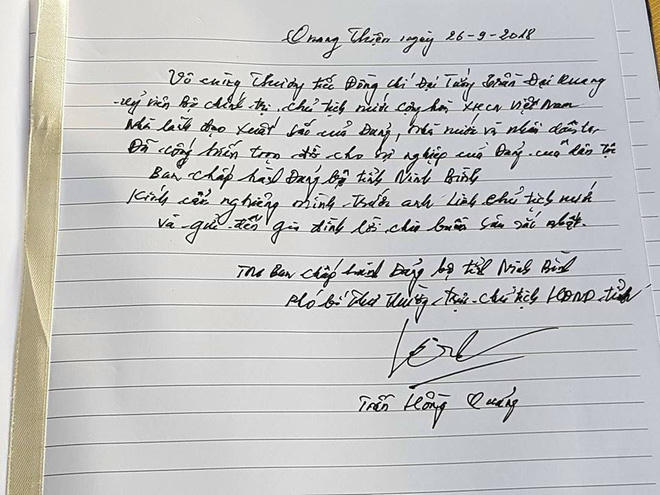 Quang Thiện ngày 26-9-2018
Vô cùng Thương tiếc Đồng chí Đại Tướng Trần Đại Quang
uỷ viên Bộ chính trị, chủ tịch nước cộng hoà XHCN Việt Nam
Nhà lãnh đạo xuất sắc của Đảng, nhà nước và nhân dân ta
Đã cống hiến trọn đời cho sự nghiệp của Đảng của dân tộc
Ban chấp hành Đảng bộ tỉnh Ninh Bình
Kính cẩn nghiêng mình trước anh linh chủ tịch nước
và gửi đến gia đình lời chia buồn sâu sắc nhất.
TM Ban chấp hành Đảng bộ tỉnh Ninh Bình
Phó bí Thư Thường trực - chủ tịch HĐND tỉnh
Trần Hồng Quảng